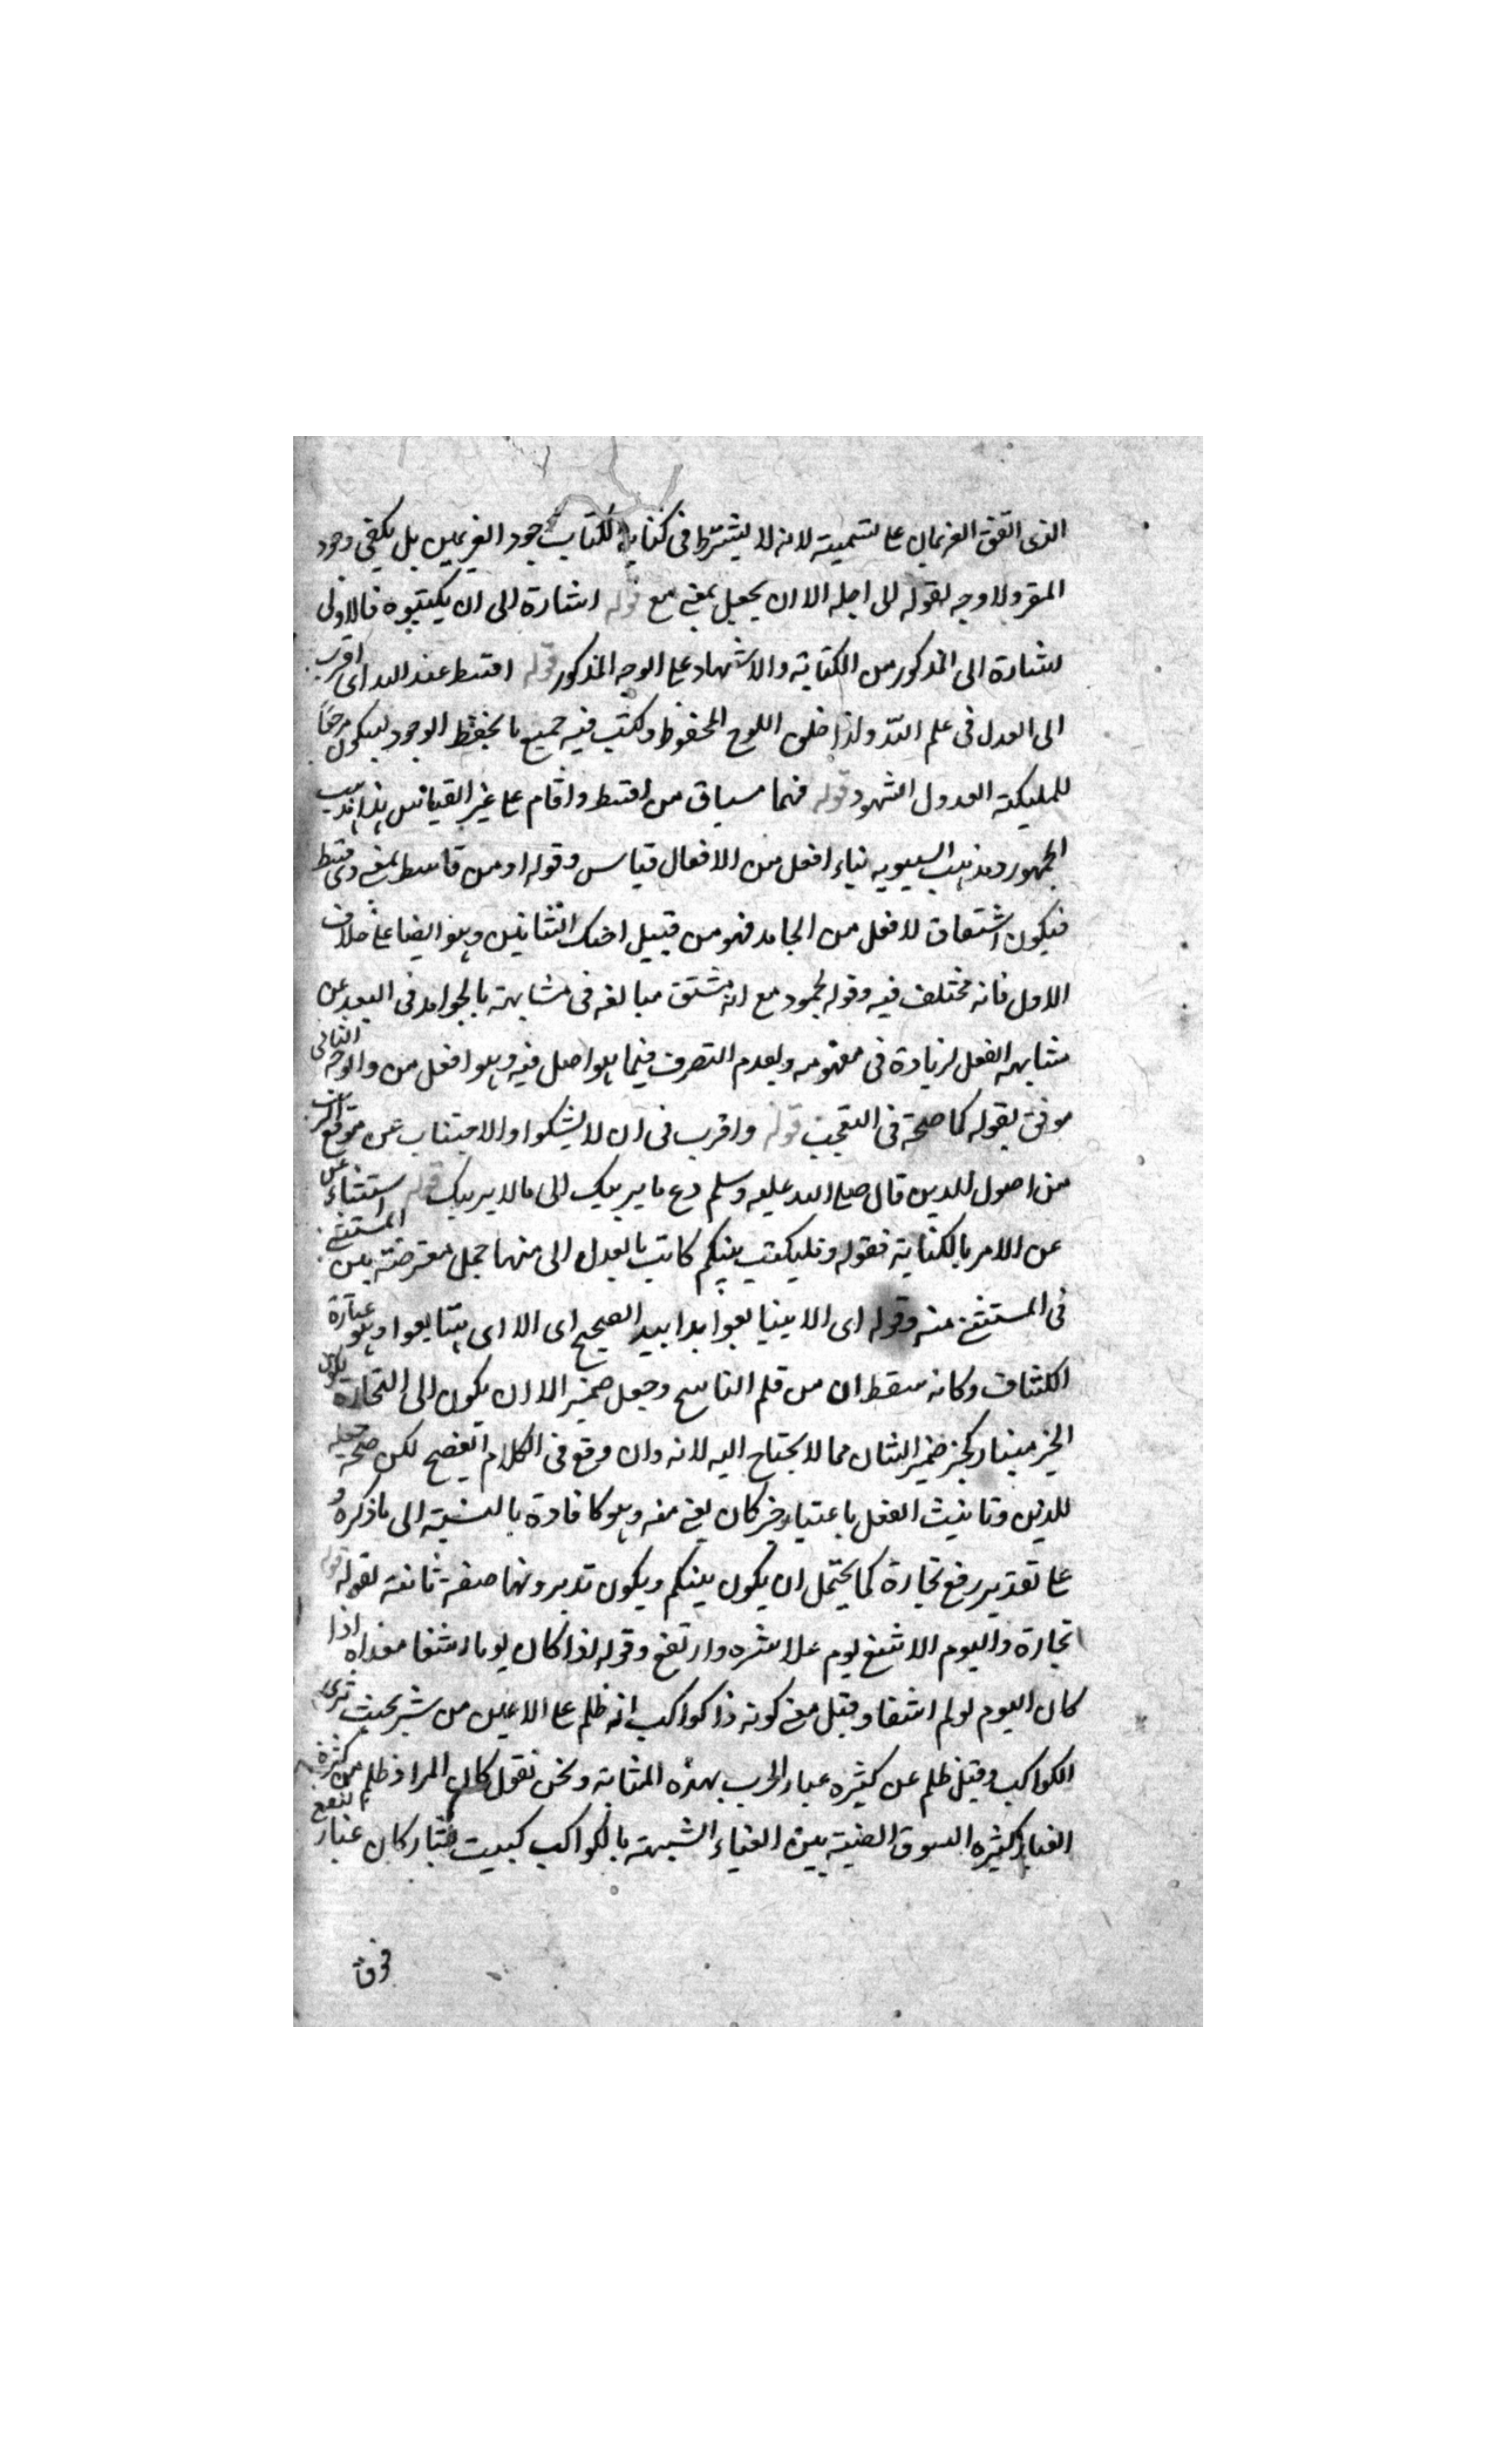 الذى اتفق الغريمان على تسميته لانه لا يشترط فى كتابة الكتاب وجود الغريمين بل يكفى وجود
المقر ولا وجه لقوله الى اجله الا ان يجعل بمعنى مع قوله اشارة الى ان يكتبوه فالاولى
اشارة الى المذكور من الكتابة والاشهاد على الوجه المذكور قوله اقسط عند الله اى اقرب
الى العدل فى علم الله ولذا خلق اللوح المحفوظ وكتب فيه جميع ما يحفظ الوجود ليكون
للمليكة العدول الشهود قوله فهما مسياق من اقسط واقام على غير القياس هذا مذهب
الجمهور ومذهب السيبويه بناء افعل من الافعال قياس وقوله او من قاسط بمعنى ذى قسط
فيكون اشتقاق لافعل من الجامد فهو من قبيل احنك الشاتين وهو ايضا على خلاف
الاول فانه مختلف فيه وقوله لجموده مع انه مشتق مبالغه فى مشابهته بالجوامد فى البعد عن
مشابهة الفعل لزيادة فى مفهومه ولعدم التصرف فيما هو اصل فيه وهو افعل من والوجه الثانى
موفق بقوله كما صحة فى التعجب قوله واقرب فى ان لا يشكوا والاجتناب عن موقع الريب
من اصول الدين قال صلى الله عليه وسلم دع ما يريبك الى ما لا يريبك قوله استثناء عن
عن الامر بالكتابة فقوله وليكتب بينكم كاتب بالعدل الى منها جمل معترضة بين المستثنى
فى المستثنى منه وقوله اى الا يتبايعوا يدا بيد الصحيح اى الا اى يتبايعوا وهو عبارة
الكشاف وكانه سقط ان من قلم الناسخ وجعل ضمير الا ان يكون الى التجارة
الخبر مبنيا ضمير الشان مما لا يحتاج اليه لانه وان وقع فى الكلام الفصيح لكن صحة جعله
للدين وتانيث الفعل باعتبار خبر كان يغنى عنه وهو كافادة بالنسبة الى ما ذكره
على تقدير رفع تجارة كما يحتمل ان يكون بينكم ويكون تديرونها صفة ثانية لقوله
تجارة واليوم الاشنع يوم علا شره وارتفع وقوله اذا كان يوما اشنعا معناه اذا
كان اليوم لوم اشنعا وقيل معنى كونه ذا كواكب انه ظلم على الاعين من شر بحيث ترى
الكواكب وقيل ظلم عن كثيره غبار الحرب بهذه المثابة ونحن نقول كان المراد ظلم من كثرة
الغبار كثيره السيوف المضية بين الغباء الشبهة بالكواكب كبيت بشار كان غبار
فوق